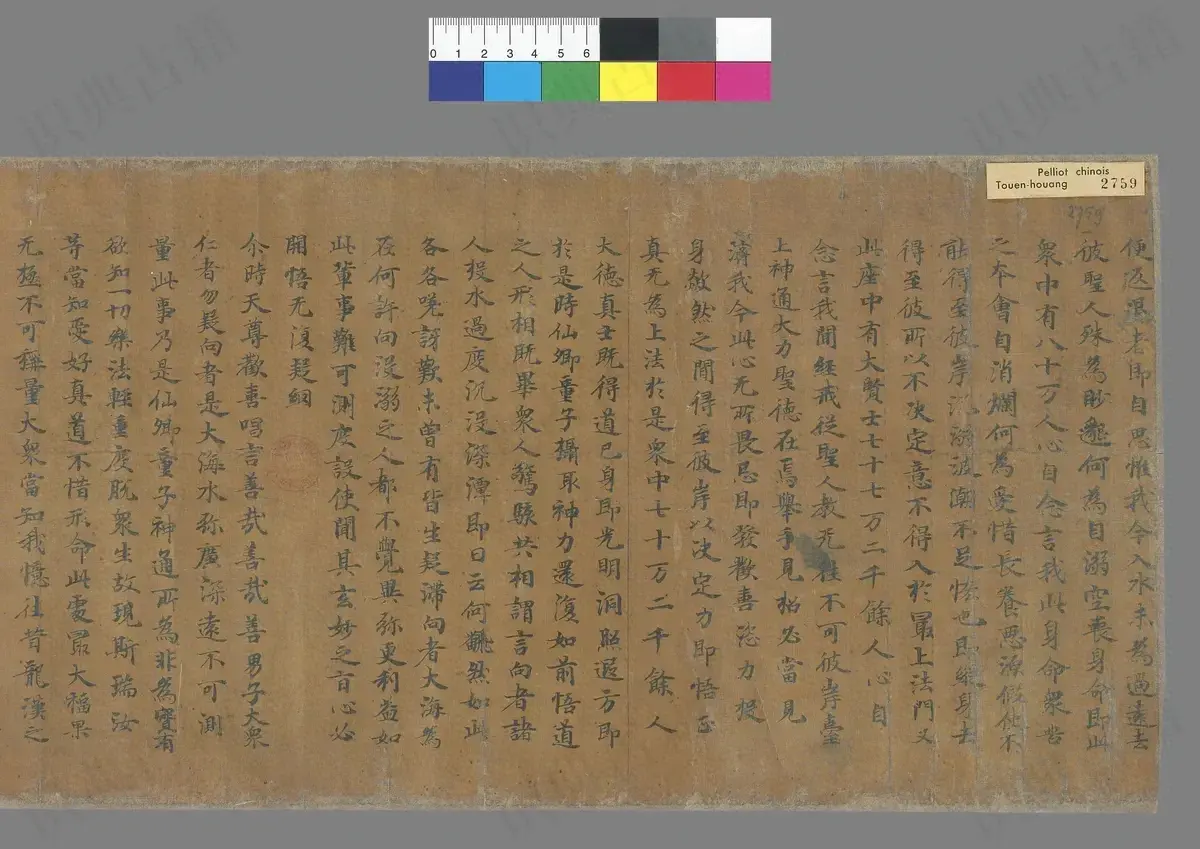 Pelliot chinois
Touen-houang 2759
2759
0 1 2 3 4 5 6
便返還者即自思惟我今入水未為過遠去
彼聖人殊為眇邈何為自溺空喪身命即此
衆中有八十万人心自念言我此身命衆苦
之本會自消爛何為愛惜長養惡源假使不
能得至彼岸沉溺波潮不足恡也即縱身去
得至彼所以不決定意不得入於最上法門又
此座中有大賢士七十七万二千餘人心自
念言我聞經戒從聖人教无往不可彼岸臺
上神通大力聖德在焉舉手見招必當見
濟我今此心无所畏忌即發歡喜恣力投
身欻然之間得至彼岸以決定力即悟正
真无為上法於是衆中七十万二千餘人
大德真士既得道已身即光明洞照遐方即
於是時仙卿童子攝取神力還復如前悟道
之人形相既畢衆人驚駭共相謂言向者諸
人投水過度沉没深潭即日云何飜然如此
各各嗟訝歎未曾有皆生疑滯向者大海為
在何許向没溺之人都不覺異弥更利益如
此輩事難可測度設使聞其玄妙之言心必
開悟无復疑網
尒時天尊歡喜唱言善哉善哉善男子大衆
仁者勿疑向者是大海水弥廣深遠不可測
量此事乃是仙卿童子神通所為非為實有
欲知一切樂法輕重度脱衆生故現斯瑞汝
等當知愛好真道不惜形命此處最大福果
无極不可稱量大衆當知我憶往昔龍漢之
識典古籍